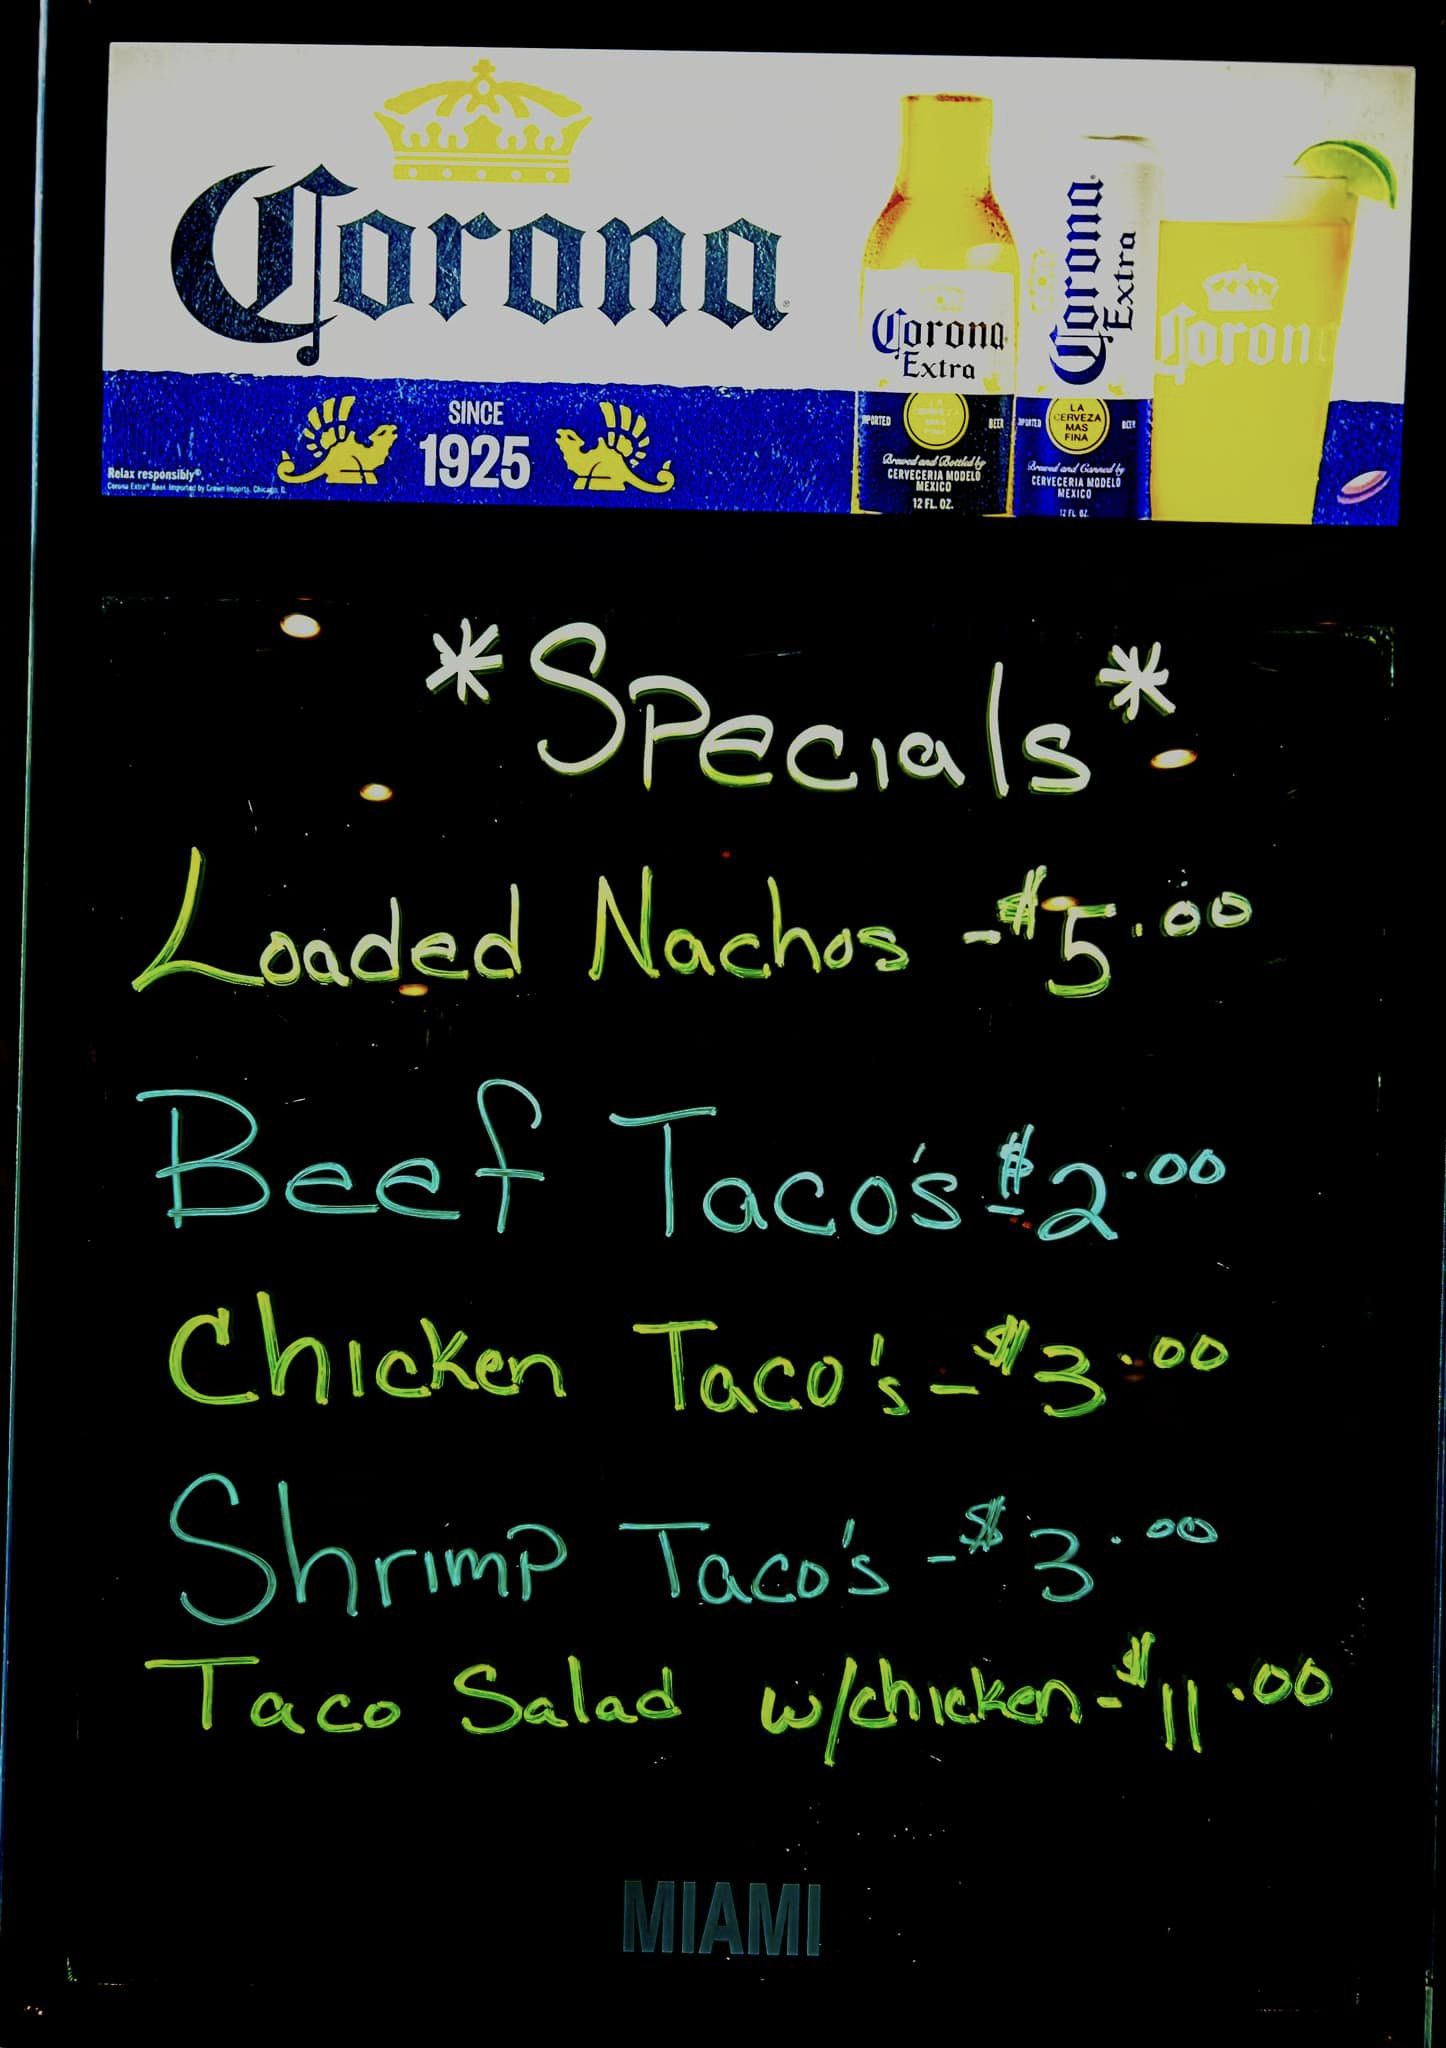 Corona
SINCE
1925
Relax responsibly®
Corona Extra® Beer. Imported by Crown Imports, Chicago, IL
Corona
Extra
IMPORTED
BEER
Brewed and Bottled by
CERVECERIA MODELO
MEXICO
12 FL. OZ.
Corona
Extra
LA
CERVEZA
MAS
FINA
IMPORTED
BEER
Brewed and Canned by
CERVECERIA MODELO
MEXICO
12 FL. OZ.
Corona
*Specials*
Loaded Nachos - $5.00
Beef Taco's - $2.00
Chicken Taco's - $3.00
Shrimp Taco's - $3.00
Taco Salad w/chicken - $11.00
MIAMI